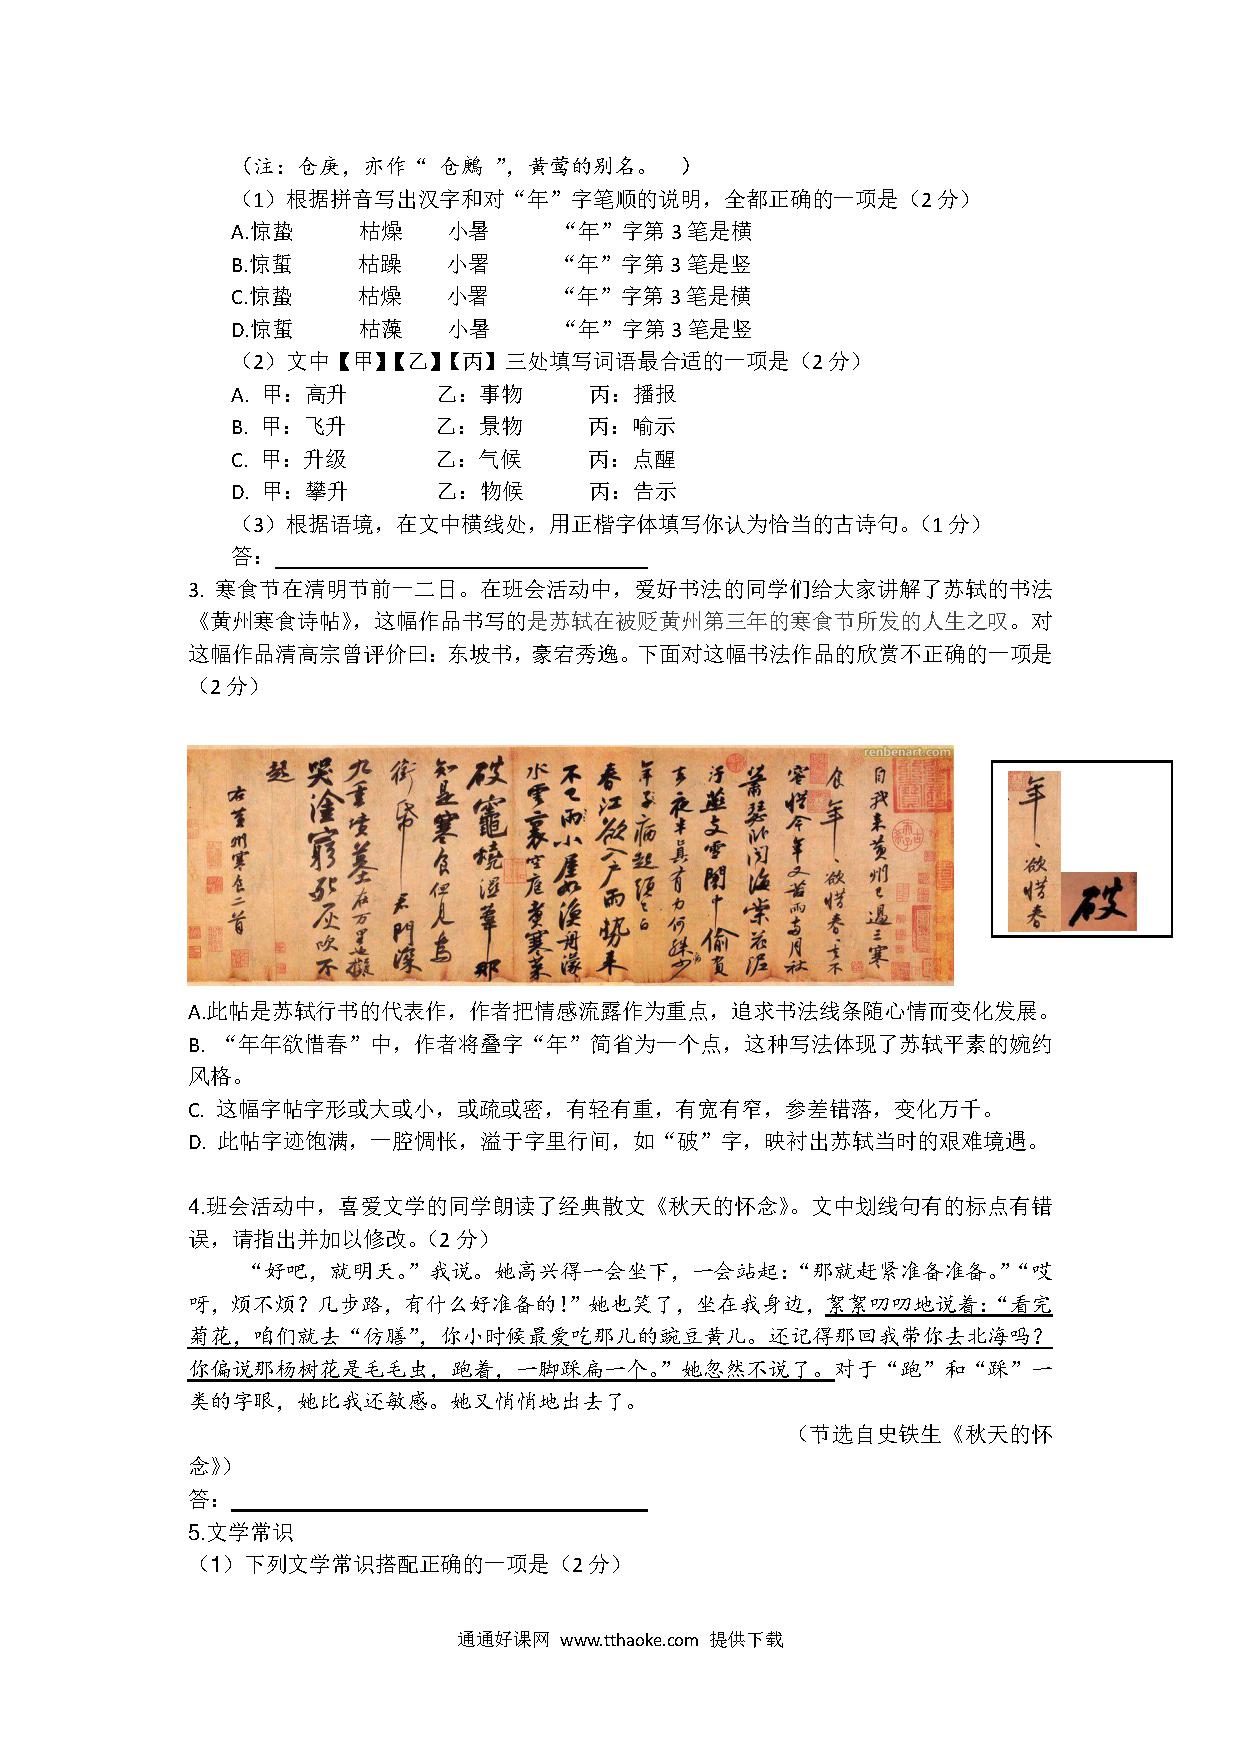 （注：仓庚，亦作“ 仓鹒 ”，黄莺的别名。 ）
（1）根据拼音写出汉字和对“年”字笔顺的说明，全都正确的一项是（2 分）
A.惊蛰 枯燥 小暑 “年”字第 3 笔是横
B.惊蜇 枯躁 小署 “年”字第 3 笔是竖
C.惊蛰 枯燥 小署 “年”字第 3 笔是横
D.惊蜇 枯藻 小暑 “年”字第 3 笔是竖
（2）文中【甲】【乙】【丙】三处填写词语最合适的一项是（2 分）
A. 甲：高升 乙：事物 丙：播报
B. 甲：飞升 乙：景物 丙：喻示
C. 甲：升级 乙：气候 丙：点醒
D. 甲：攀升 乙：物候 丙：告示
（3）根据语境，在文中横线处，用正楷字体填写你认为恰当的古诗句。（1 分）
答：
3. 寒食节在清明节前一二日。在班会活动中，爱好书法的同学们给大家讲解了苏轼的书法
《黄州寒食诗帖》，这幅作品书写的是苏轼在被贬黄州第三年的寒食节所发的人生之叹。对
这幅作品清高宗曾评价曰：东坡书，豪宕秀逸。下面对这幅书法作品的欣赏不正确的一项是
（2 分）
renbenart.com
自我来黄州已过三寒
食年、欲惜春、去不
容惜今年又苦雨两月秋
萧瑟卧闻海棠花泥
污燕支雪闇中偷负
去夜半真有力何殊少
年子病起须已白
春江欲入户雨势来
不已雨小屋如渔舟濛
水云里空庖煮寒菜
破竈烧湿苇那
知是寒食但见乌
衔帋君门深
九重坟墓在万里也拟
哭塗穷死灰吹不
起
右黄州寒食二首
年、欲惜春
破
A.此帖是苏轼行书的代表作，作者把情感流露作为重点，追求书法线条随心情而变化发展。
B. “年年欲惜春”中，作者将叠字“年”简省为一个点，这种写法体现了苏轼平素的婉约
风格。
C. 这幅字帖字形或大或小，或疏或密，有轻有重，有宽有窄，参差错落，变化万千。
D. 此帖字迹饱满，一腔惆怅，溢于字里行间，如“破”字，映衬出苏轼当时的艰难境遇。
4.班会活动中，喜爱文学的同学朗读了经典散文《秋天的怀念》。文中划线句有的标点有错
误，请指出并加以修改。（2 分）
“好吧，就明天。”我说。她高兴得一会坐下，一会站起：“那就赶紧准备准备。”“哎
呀，烦不烦？几步路，有什么好准备的！”她也笑了，坐在我身边，絮絮叨叨地说着：“看完
菊花，咱们就去“仿膳”，你小时候最爱吃那儿的豌豆黄儿。还记得那回我带你去北海吗？
你偏说那杨树花是毛毛虫，跑着，一脚踩扁一个。”她忽然不说了。对于“跑”和“踩”一
类的字眼，她比我还敏感。她又悄悄地出去了。
（节选自史铁生《秋天的怀
念》）
答：
5.文学常识
（1）下列文学常识搭配正确的一项是（2 分）
通通好课网 www.tthaoke.com 提供下载